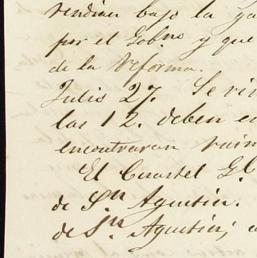 rendian bajo la ga
por el Gobno y que
de la Reforma.
Julio 27. Se ri
las 12. deben e
encontraran
El Cuartel G.
de Sn Agustin.
de Sn Agustin; a